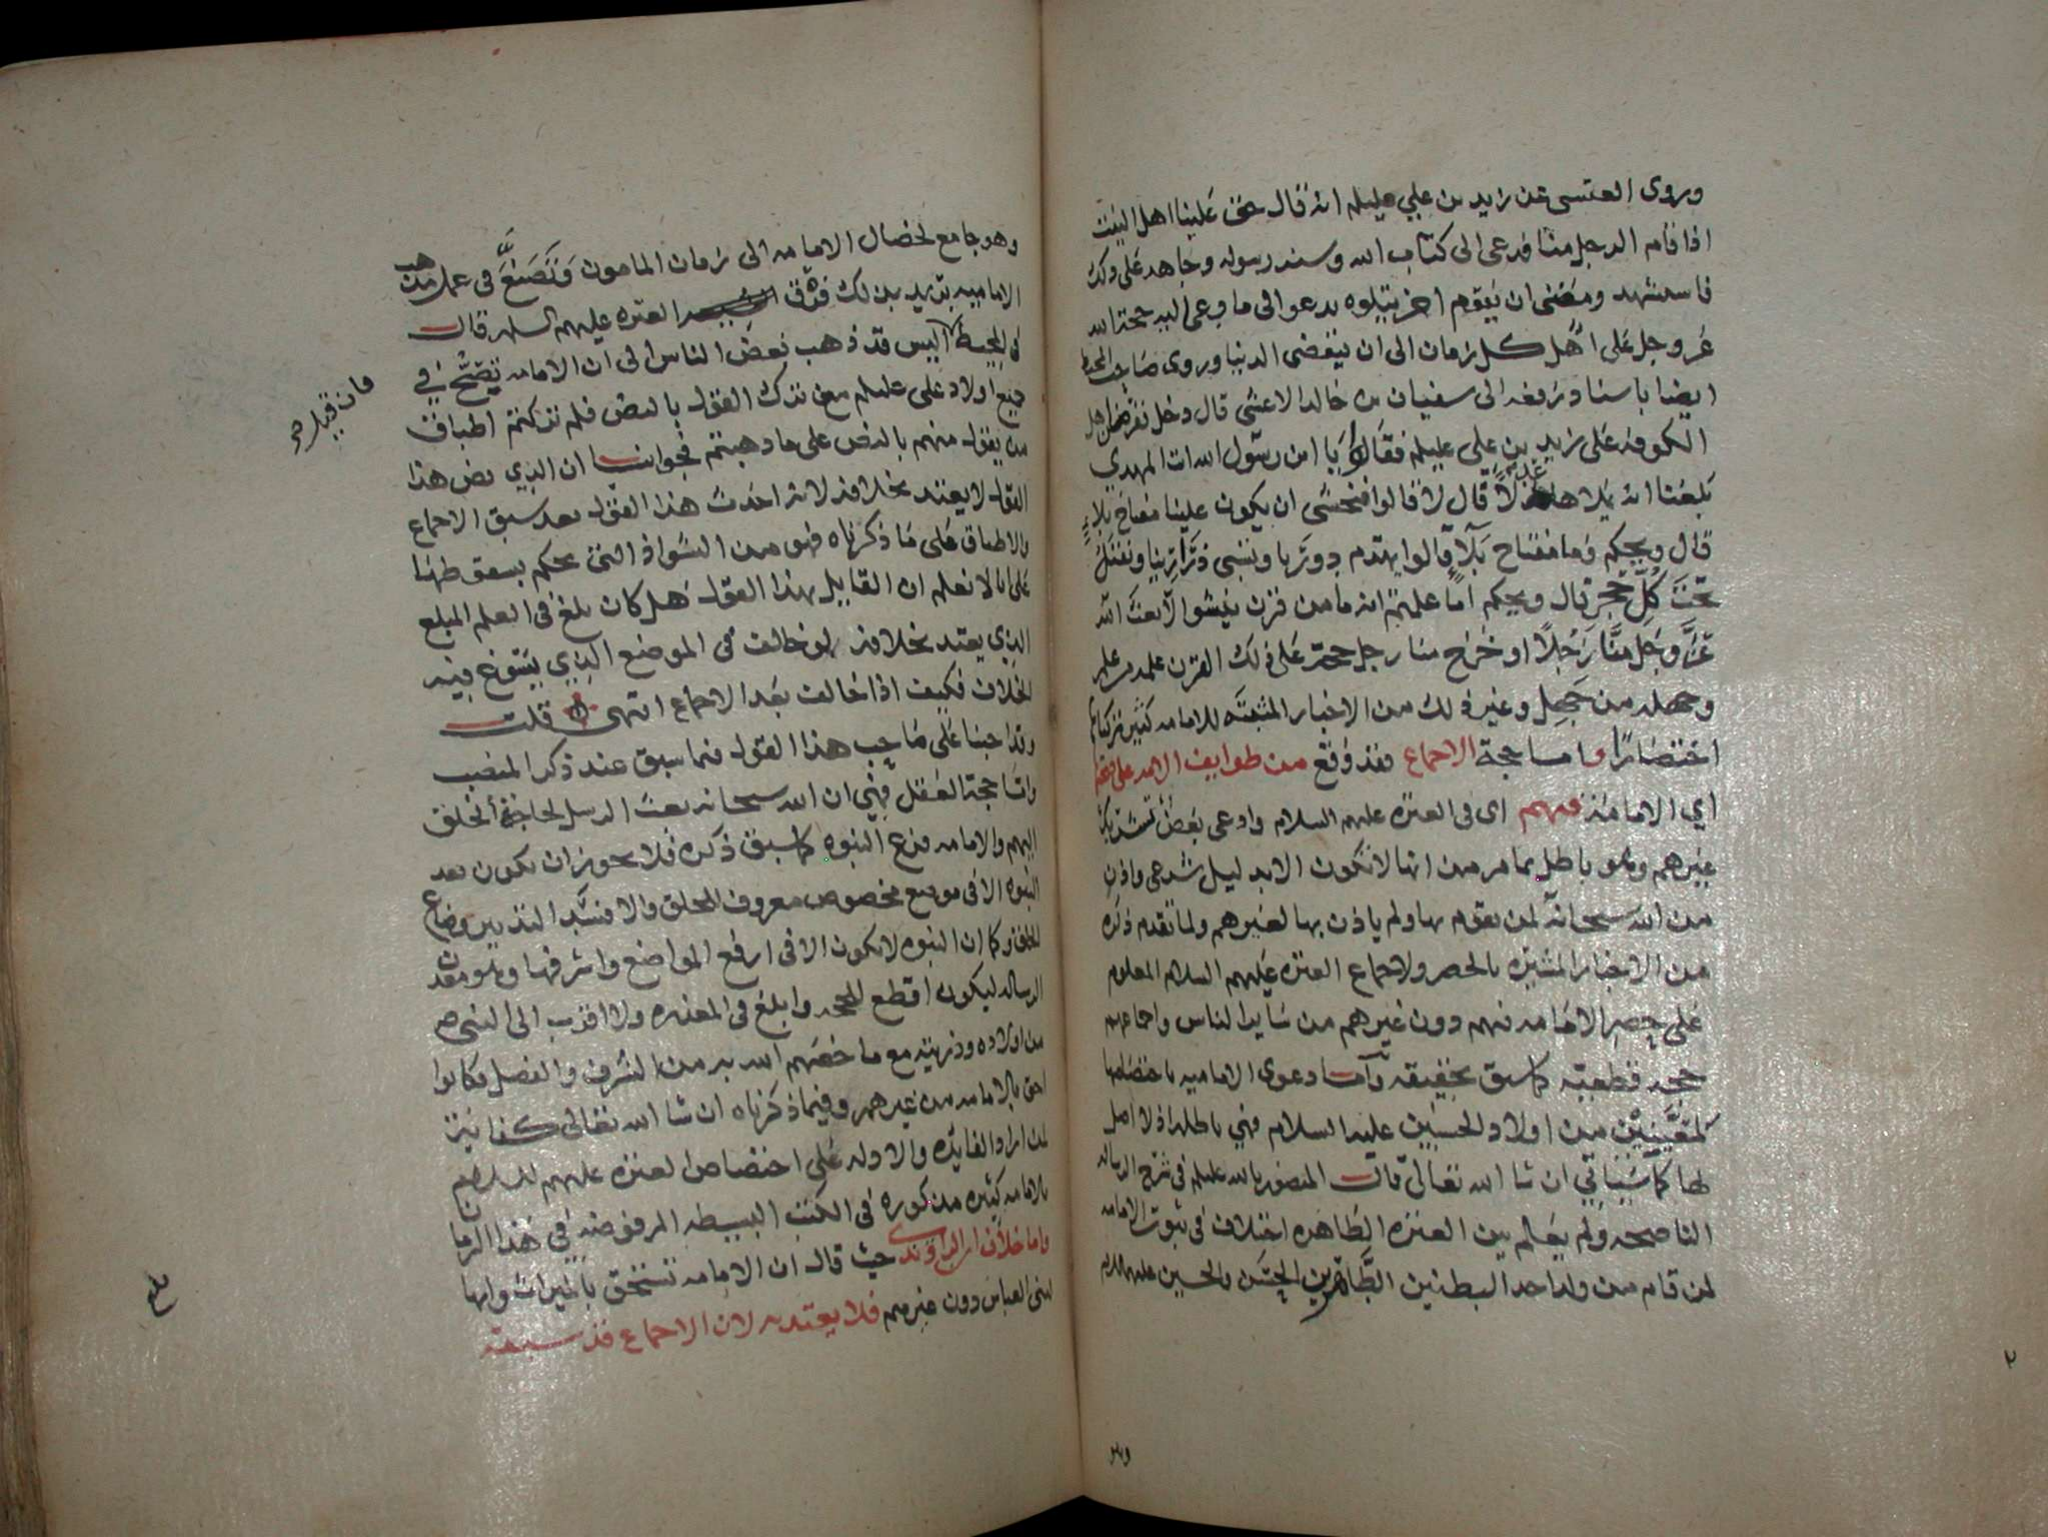 وروى العنسي عن زيد بن علي عليلم انه قال حق علينا اهل البيت
اذا قام الرجل منا فدعى الى كتاب الله وسنه رسوله وجاهد على ذلك
فاستشهد ومضى ان يقوم اخر يتلوه يدعوا الى ما دعى اليه حجة الله
عز وجل على اهل كل زمان الى ان تنقضى الدنيا وروى صاحب المحيط
ايضا باسناد يرفعه الى سفيان بن خالد الاعشى قال دخل نفر من اهل
الكوفه على زيد بن علي عليلم فقالوا يا ابن رسول الله انت المهدي
بلغنا انه يملاها عدلا قال لا قالوا فنخشى ان يكون علينا مفتاح بلاء
قال ويحكم وما مفتاح بلآء قالوا يهتدم دورنا وتسبى ذرارينا ونقتل
تحت كل حجر قال ويحكم اما علمتم انه ما من قرن ينشوا الا بعث الله
عز وجل منا رجلا او خرج منا رجل حجة على ذلك القرن علمه من علم
وجهله من جهل وغير ذلك من الاخبار المثبته للامامه كثير تركناها
اختصارا واما حجة الاجماع فقد وقع من طوايف الامه على صحتها
اي الامامة فيهم اى فى العتره عليهم السلام وادعى بعض
غيرهم وهو باطل بما مر من انها لا تكون الا بدليل شرعى واذن
من الله سبحانه لمن يقوم بها ولم ياذن بها لغيرهم ولما تقدم ذكره
من الاخبار المشيره بالحصر ولاجماع العتره عليهم السلام المعلوم
على حصر الامامه فيهم دون غيرهم من ساير الناس واجماعهم
حجه قطعيه كما سبق تحقيقه وآما دعوى الاماميه باختصاصها
لمعينين من اولاد الحسين عليه السلام فهي باطله اذ لا اصل
لها كما سياتي ان شا الله تعالى قال المنصور بالله عليلم في شرح الرساله
الناصحه ولم يعلم بين العتره الطاهره اختلاف فى ثبوت الامامه
لمن قام من ولد احد البطنين الطاهرين الحسن والحسين عليهم السلام
وهو
٢
وهو جامع لخصال الامامه الى زمان المامون وتصنع فى عمل مذهب
الاماميه يريد بذلك فرق العتره عليهم السلم قال
في المحيط اليس قد ذهب بعض الناس الى ان الامامه تصح في
جميع اولاد على عليلم مع ترك القول بالنص فلم تركتم اطباق
من يقول منهم بالنص على ما ذهبتم فجوابنا ان الذي نص هذا
القول لا يعتد بخلافه لانه احدث هذا القول بعد سبق الاجماع
والاطباق على ما ذكرناه فهو من الشواذ التى يحكم بسقوطها
على انا لا نعلم ان القايل بهذا القول هل كان بلغ فى العلم المبلغ
الذي يعتد بخلافه لو خالف فى الموضع الذي يسوغ فيه
الخلاف فكيف اذا خالف بعد الاجماع انتهى قلت
وقد اجبنا على صاحب هذا القول فيما سبق عند ذكر المنصب
واما حجة العقل فهي ان الله سبحانه بعث الرسل لحاجة الخلق
اليهم والامامه فرع النبوه كما سبق ذكره فلا يجوز ان يكون بعد
النبوه الا فى موضع مخصوص معروف للخلق والا فسد التدبير وضاع
الخلق وكما ان النبوه لا تكون الا فى ارفع المواضع واشرفها وهو معدن
الرساله ليكون اقطع للحجه وابلغ فى المعذره ولا اقرب الى النبى صم
من اولاده وذريته مع ما خصهم الله به من الشرف والفضل فكانوا
احق بالامامه من غيرهم وفيما ذكرناه ان شا الله تعالى كفاية
لمن اراد الفايده والادله على اختصاص العتره عليهم السلام
بالامامه كثيره مذكوره فى الكتب البسيطه المرفوضه في هذا الزمان
واما خلاف ابن الراوندي حيث قال ان الامامه تستحق بالميراث وانها
لبنى العباس دون غيرهم فلا يعتد به لان الاجماع قد سبقه
فان قيل صح